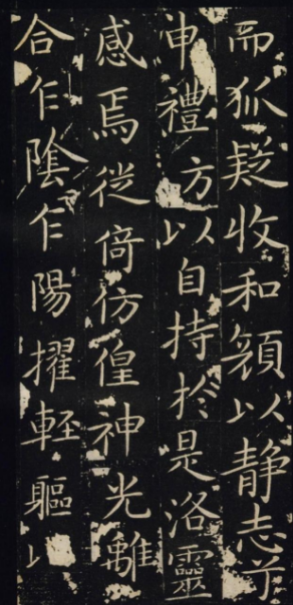 而狐疑收和顏以静志兮
申禮方以自持於是洛靈
感焉徙倚仿偟神光離
合乍陰乍陽擢輕軀以